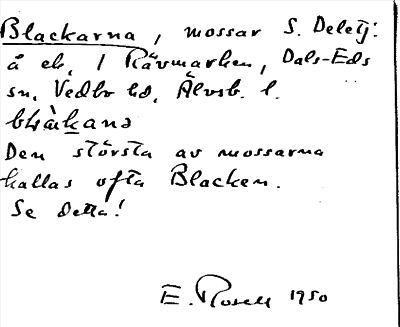 Blackarna, mossar S. Deletj:
å ek, 1 Rävmarken, Dals-Eds
sn, Vedbo hd, Älvsb. l.
Den största av mossarna
kallas ofta Blacken.
Se detta!
E. Rosell 1950